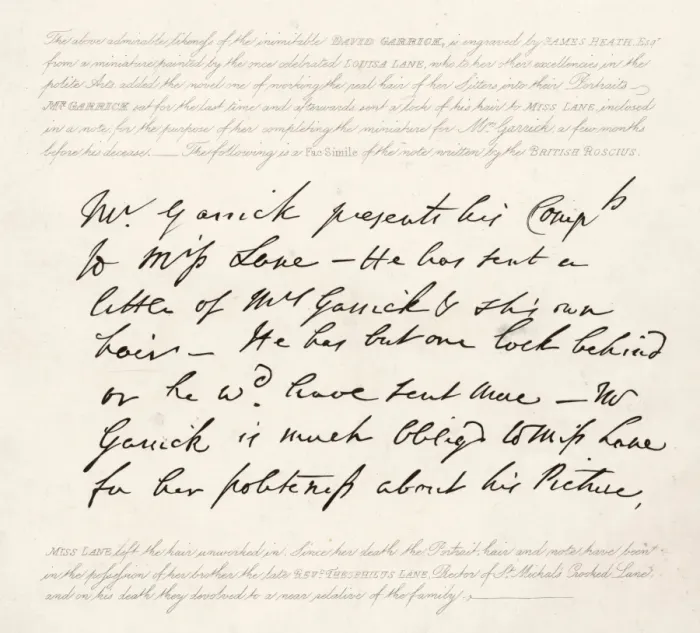 The above admirable likeness of the inimitable DAVID GARRICK, is engraved by JAMES HEATH, Esqr
from a miniature painted by the once celebrated LOUISA LANE, who to her other excellencies in the
polite Arts, added the novel one of working the real hair of her Sitters into their Portraits
Mr. GARRICK sat for the last time and afterwards sent a lock of his hair to MISS LANE, inclosed
in a note, for the purpose of her completing the miniature for Mrs. Garrick, a few months
before his decease. — The following is a Fac Simile of the note written by the BRITISH ROSCIUS.
Mr. Garrick presents his Compts
to Miss Lane – He has sent a
little of Mrs Garrick's & his own
hair – He has but one lock behind
or he wd. have sent more – Mr
Garrick is much Obligd to Miss Lane
for her politeness about his Picture,
MISS LANE left the hair unworked in. Since her death the Portrait, hair and note have been
in the possession of her brother the late REVD. THEOPHILUS LANE, Rector of St. Michals Crooked Lane,
and on his death they devolved to a near relative of the family.